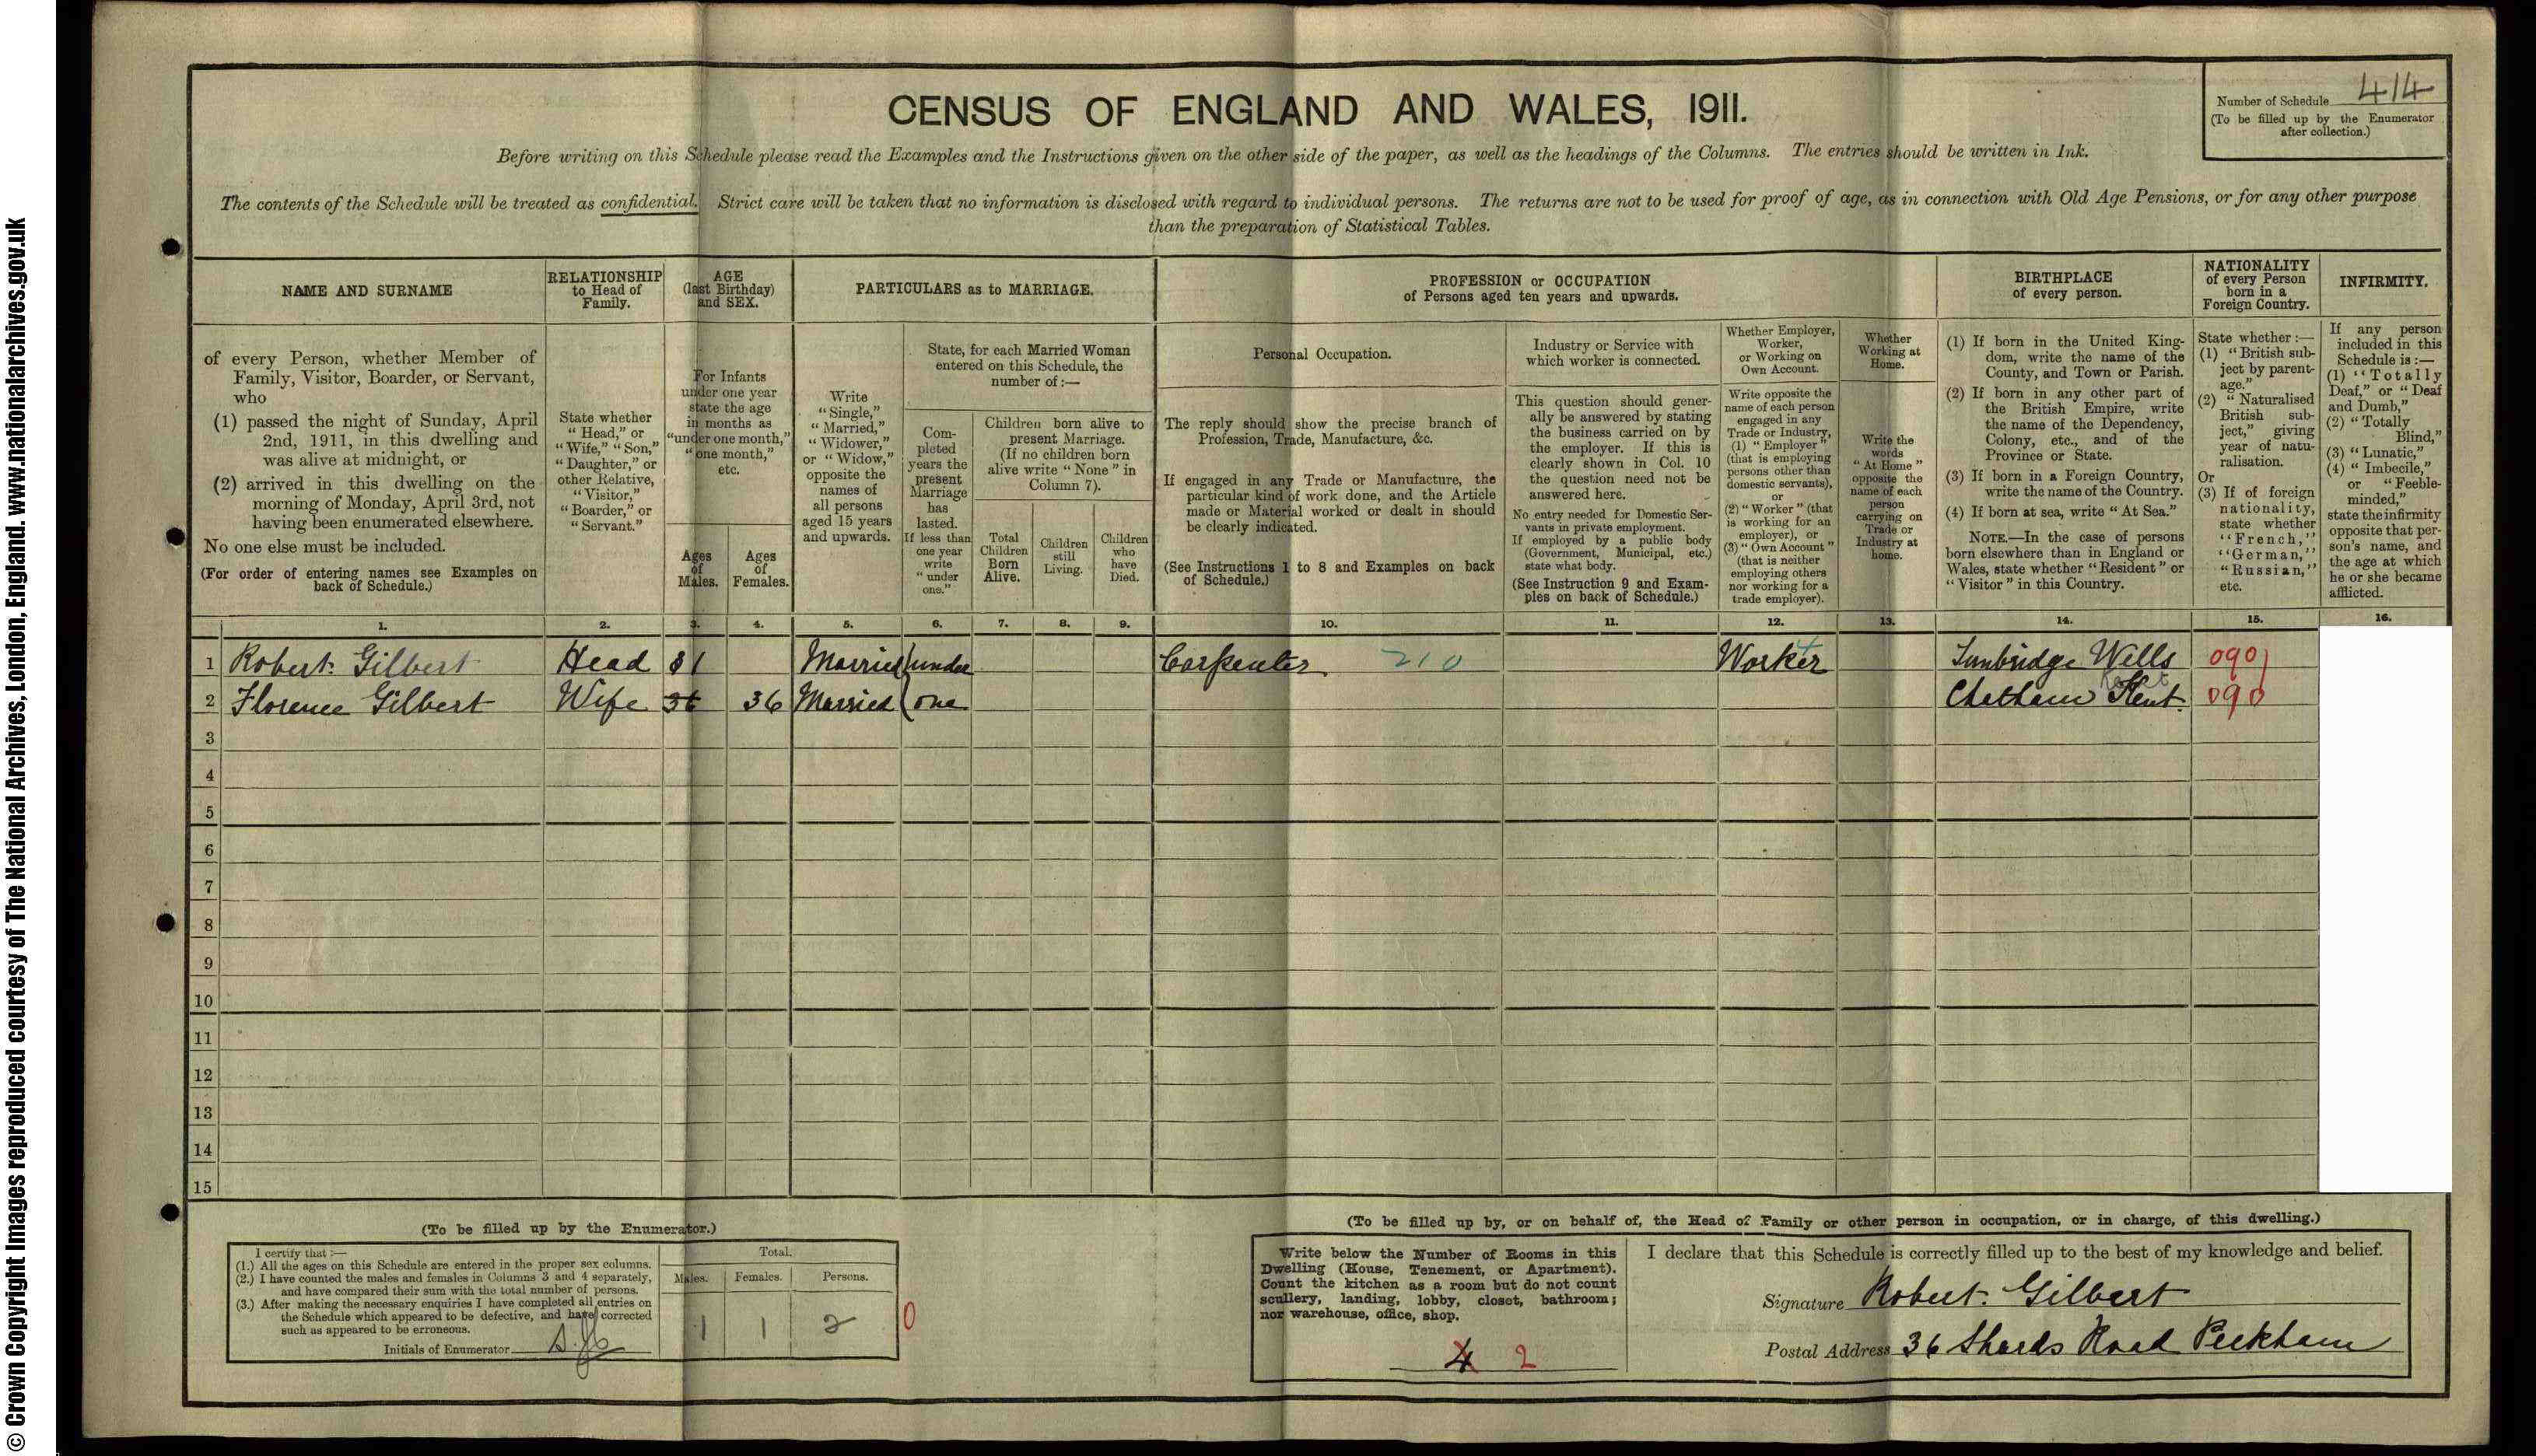 © Crown Copyright Images reproduced courtesy of The National Archives, London, England. www.nationalarchives.gov.uk
CENSUS OF ENGLAND AND WALES, 1911.
Number of Schedule 414
(To be filled up by the Enumerator
after collection.)
Before writing on this Schedule please read the Examples and the Instructions given on the other side of the paper, as well as the headings of the Columns. The entries should be written in Ink.
The contents of the Schedule will be treated as confidential. Strict care will be taken that no information is disclosed with regard to individual persons. The returns are not to be used for proof of age, as in connection with Old Age Pensions, or for any other purpose
than the preparation of Statistical Tables.
NAME AND SURNAME
of every Person, whether Member of
Family, Visitor, Boarder, or Servant,
who
(1) passed the night of Sunday, April
2nd, 1911, in this dwelling and
was alive at midnight, or
(2) arrived in this dwelling on the
morning of Monday, April 3rd, not
having been enumerated elsewhere.
No one else must be included.
(For order of entering names see Examples on
back of Schedule.)
RELATIONSHIP
to Head of
Family.
State whether
"Head," or
"Wife," "Son,"
"Daughter," or
other Relative,
"Visitor,"
"Boarder," or
"Servant."
AGE
(last Birthday)
and SEX.
For Infants
under one year
state the age
in months as
"under one month,"
"one month,"
etc.
Ages
of
Males.
Ages
of
Females.
PARTICULARS as to MARRIAGE.
Write
"Single,"
"Married,"
"Widower,"
or "Widow,"
opposite the
names of
all persons
aged 15 years
and upwards.
State, for each Married Woman
entered on this Schedule, the
number of:—
Com-
pleted
years the
present
Marriage
has
lasted.
If less than
one year
write
"under
one."
Children born alive to
present Marriage.
(If no children born
alive write "None" in
Column 7).
Total
Children
Born
Alive.
Children
still
Living.
Children
who
have
Died.
PROFESSION or OCCUPATION
of Persons aged ten years and upwards.
Personal Occupation.
The reply should show the precise branch of
Profession, Trade, Manufacture, &c.
If engaged in any Trade or Manufacture, the
particular kind of work done, and the Article
made or Material worked or dealt in should
be clearly indicated.
(See Instructions 1 to 8 and Examples on back
of Schedule.)
Industry or Service with
which worker is connected.
This question should gener-
ally be answered by stating
the business carried on by
the employer. If this is
clearly shown in Col. 10
the question need not be
answered here.
No entry needed for Domestic Ser-
vants in private employment.
If employed by a public body
(Government, Municipal, etc.)
state what body.
(See Instruction 9 and Exam-
ples on back of Schedule.)
Whether Employer,
Worker,
or Working on
Own Account.
Write opposite the
name of each person
engaged in any
Trade or Industry,
(1) "Employer"
(that is employing
persons other than
domestic servants),
or
(2) "Worker" (that
is working for an
employer), or
(3) "Own Account"
(that is neither
employing others
nor working for a
trade employer).
Whether
Working at
Home.
Write the
words
"At Home"
opposite the
name of each
person
carrying on
Trade or
Industry at
home.
BIRTHPLACE
of every person.
(1) If born in the United King-
dom, write the name of the
County, and Town or Parish.
(2) If born in any other part of
the British Empire, write
the name of the Dependency,
Colony, etc., and of the
Province or State.
(3) If born in a Foreign Country,
write the name of the Country.
(4) If born at sea, write "At Sea."
NOTE.—In the case of persons
born elsewhere than in England or
Wales, state whether "Resident" or
"Visitor" in this Country.
NATIONALITY
of every Person
born in a
Foreign Country.
State whether:—
(1) "British sub-
ject by parent-
age."
(2) "Naturalised
British sub-
ject," giving
year of natu-
ralisation.
Or
(3) If of foreign
nationality,
state whether
"French,"
"German,"
"Russian,"
etc.
INFIRMITY.
If any person
included in this
Schedule is:—
(1) "Totally
Deaf," or "Deaf
and Dumb,"
(2) "Totally
Blind,"
(3) "Lunatic,"
(4) "Imbecile,"
or "Feeble-
minded,"
state the infirmity
opposite that per-
son's name, and
the age at which
he or she became
afflicted.
1. 2. 3. 4. 5. 6. 7. 8. 9. 10. 11. 12. 13. 14. 15. 16.
1 Robert Gilbert Head 31 Married under Carpenter 210 Worker Tunbridge Wells Kent 090
2 Florence Gilbert Wife 36 36 Married one Chatham Kent 090
3
4
5
6
7
8
9
10
11
12
13
14
15
(To be filled up by the Enumerator.)
I certify that:—
(1.) All the ages on this Schedule are entered in the proper sex columns.
(2.) I have counted the males and females in Columns 3 and 4 separately,
and have compared their sum with the total number of persons.
(3.) After making the necessary enquiries I have completed all entries on
the Schedule which appeared to be defective, and have corrected
such as appeared to be erroneous.
Initials of Enumerator
Total.
Males. Females. Persons.
1 1 2 0
(To be filled up by, or on behalf of, the Head of Family or other person in occupation, or in charge, of this dwelling.)
Write below the Number of Rooms in this
Dwelling (House, Tenement, or Apartment).
Count the kitchen as a room but do not count
scullery, landing, lobby, closet, bathroom;
nor warehouse, office, shop.
4 2
I declare that this Schedule is correctly filled up to the best of my knowledge and belief.
Signature Robert Gilbert
Postal Address 36 Shards Road Peckham